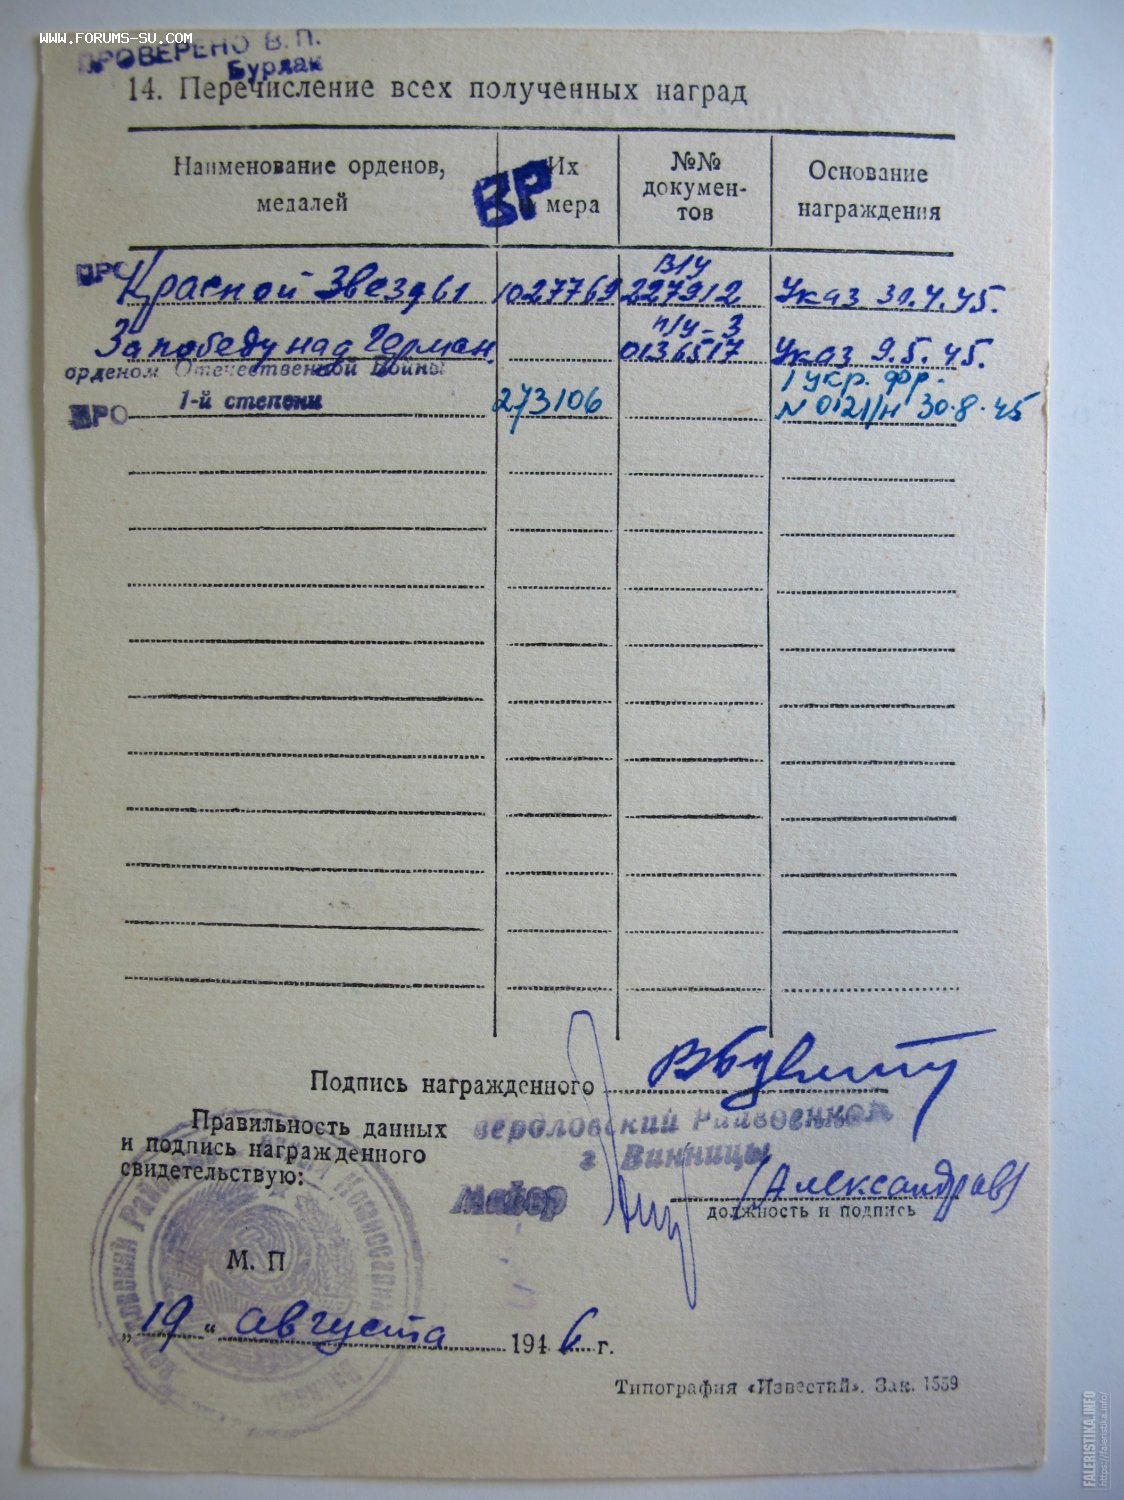 www.forums-su.com
ПРОВЕРЕНО В. П.
Бурлак
14. Перечисление всех полученных наград
Наименование орденов, медалей
Их
мера
№№ докумен-тов
Основание награждения
ВР
ПРО Красной Звезды 1027769 В/У 227912 Указ 30.4.45.
За победу над Герман. П/У-З 0136517 Указ 9.5.45.
орденом Отечественной Войны
ВРО 1-й степени 273106 1 Укр. фр. N 0121/н 30.8.45
Подпись награжденного
Правильность данных
и подпись награжденного
свидетельствую:
вердловский Райвоенком
г Винницы
Майор
(Александров)
должность и подпись
М. П
„19“ августа 1946 г.
Типография «Известий». Зак. 1559
FALERISTIKA.INFO
https://faleristika.info/